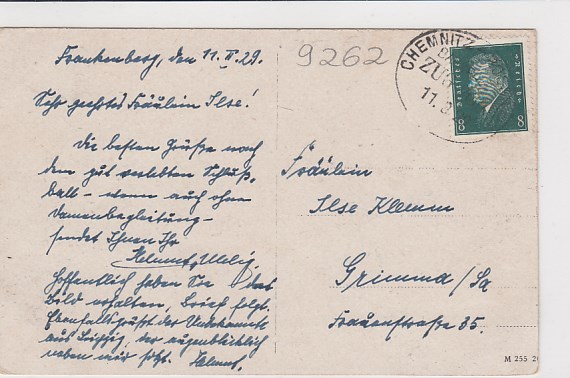 Frankenberg, den 11. II. 29.
9262
Sehr geehrtes Fräulein Ilse!
Die besten Grüße nach
dem gut verlebten Schluß-
ball - wenn auch ohne
Damenbegleitung -
sendet Ihnen Ihr
Helmut
Hoffentlich haben Sie das
Bild erhalten, Brief folgt.
Ebenfalls grüßt der Unbekannte
aus Leipzig, der augenblicklich
neben mir sitzt. Helmut.
CHEMNITZ
ZUG
11. 2
Deutsches Reich
8 8
Fräulein
Ilse Klemm
Grimma/Sa
Frauenstraße 35.
M 255